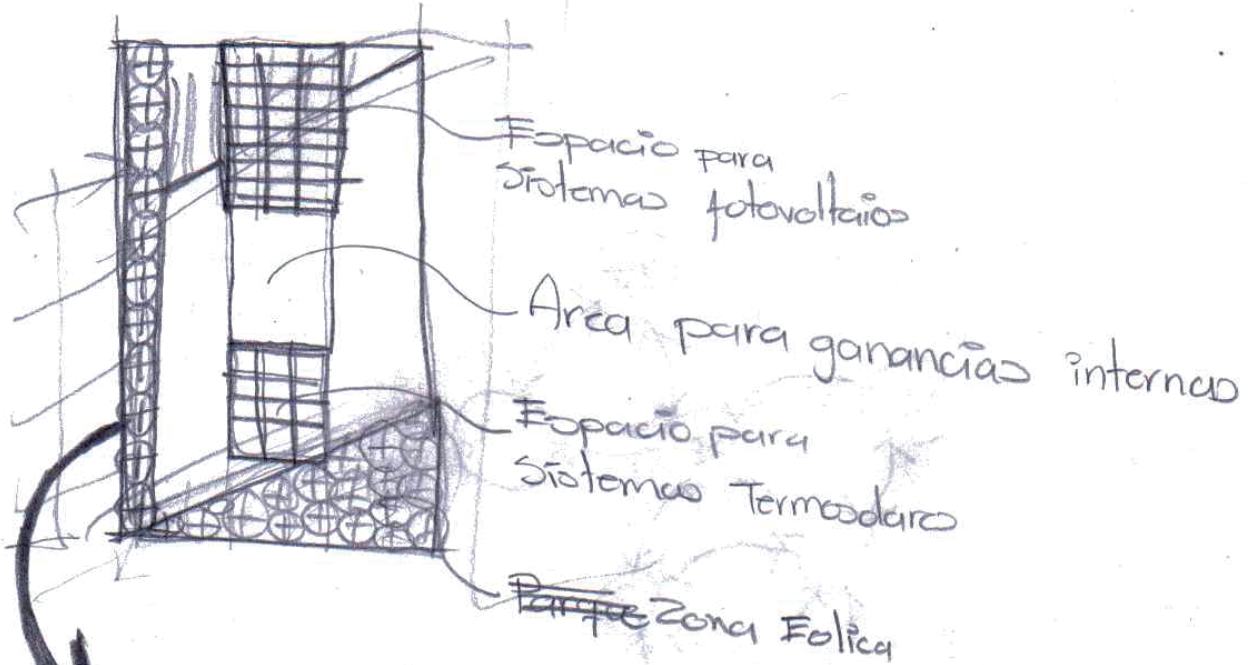 Espacio para
Sistemas fotovoltaios
Area para ganancias internas
Espacio para
Sistemas Termosolares
Parque Zona Eolica